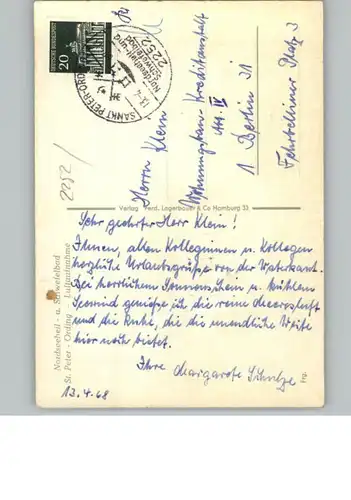 DEUTSCHE BUNDESPOST
20
SANKT PETER-ORDING
2252
Nordseeheil- und
Schwefelbad
Herrn Klein
Wohnungsbau-Kreditanstalt
Abt. IV
1 Berlin 31
Fehrbelliner Platz 3
2252/
Verlag Ferd. Lagerbauer & Co Hamburg 23
Nordseeheil- u. Schwefelbad
St. Peter - Ording - Luftaufnahme
Sehr geehrter Herr Klein!
Ihnen, allen Kolleginnen u. Kollegen
herzliche Urlaubsgrüße von der Waterkant.
Bei herrlichem Sonnenschein u. kühlem
Seewind genieße ich die reine Meeresluft
und die Ruhe, die die unendliche Weite
hier noch bietet.
Ihre Margarete Schulze
13.4.68